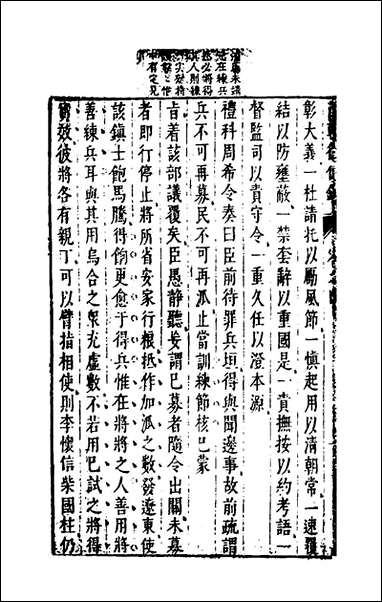 在練兵
必將得
其人則練
有定見
彰大義一杜請托以勵風節一慎起用以清朝常一速覆
結以防壅蔽一禁奎辭以重國是一責撫按以約考語一
督監司以責守令一重久任以澄本源
禮科周希令奏曰臣前待罪兵垣得與聞邊事故前疏謂
兵不可再募民不可再派止當訓練節核已蒙
旨着該部議覆矣臣愚靜聽妄謂已募者隨令出關未募
者即行停止將所省安家行糧抵作加派之數發遼東使
該鎮士飽馬騰得餉更愈于得兵惟在將將之人善用將
善練兵耳與其用烏合之衆充虛數不若用已試之將得
實效彼將各有親丁可以臂指相使則李懷信柴國柱仍